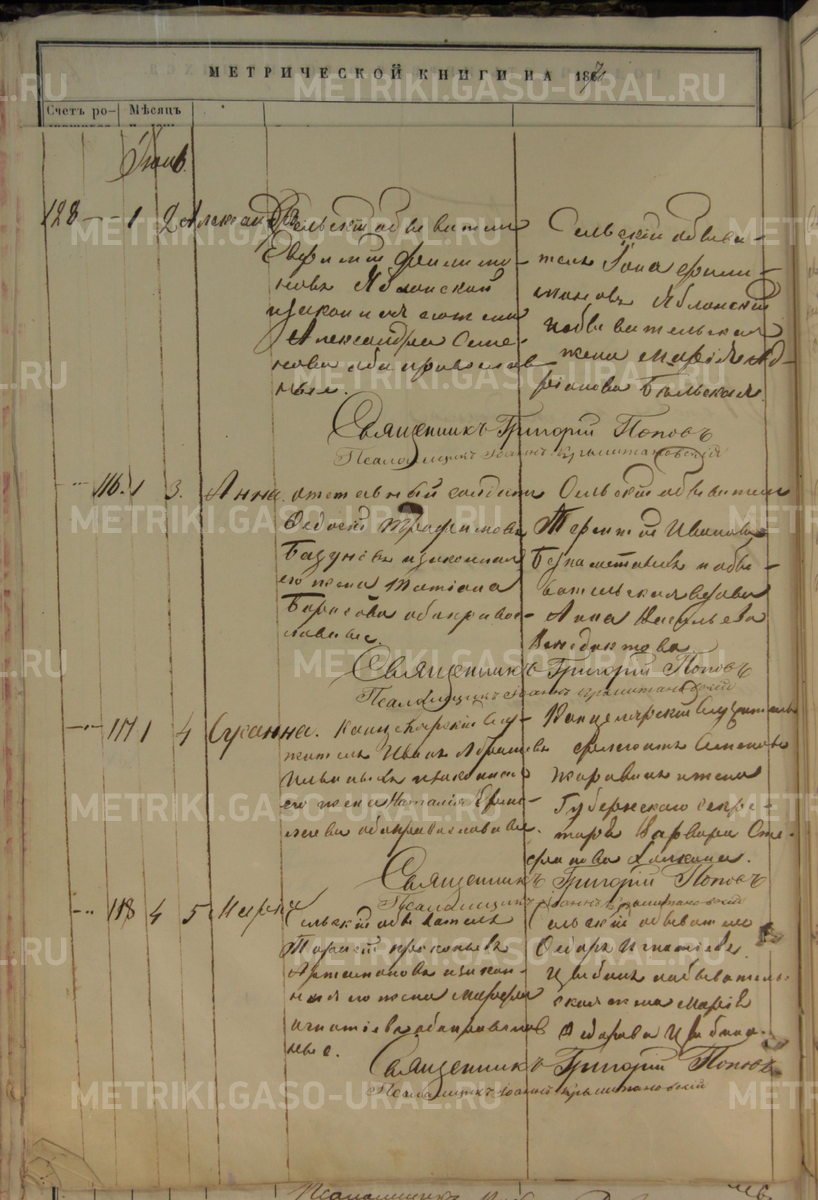 МЕТРИЧЕСКОЙ КНИГИ НА 1867
Счетъ ро- Мѣсяцъ
Іюнь
128 1 2 Александръ Сельскій обыватель
Евфимій Филимо-
новъ Яблонскій
и законная его жена
Александра Семе-
нова оба православ
ные.
Сельскій обыва-
тель Іона Фили-
моновъ Яблонскій
и обывательская
жена Марія Анд-
ріанова Бѣльская
Священникъ Григорій Поповъ
Псаломщикъ Іоаннъ
116. 1 3. Анна. отставный солдатъ
Федосій Трофимовъ
и законная
его жена Татіана
Борисова оба право-
славные.
Сельскій обыватель
Терентій Ивановъ
и обы-
вательская вдова
Анна Васильева
Венедиктова
Священникъ Григорій Поповъ
Псаломщикъ Іоаннъ
117 1 4 Сусанна. Канцелярскій слу-
житель Иванъ Абрамовъ
и законная
его жена Наталія Ермо-
лаева оба православные.
Канцелярскій служитель
Семеновъ
и жена
Губернскаго секре-
таря Варвара Сте-
фанова
Священникъ Григорій Поповъ
Псаломщикъ Іоаннъ
118 4 5 Марѳа Сельскій обыватель
Тарасій Прокопьевъ
Артамоновъ и закон-
ная его жена Марфа
Игнатіева оба православ
ные.
Сельскій обыватель
Федоръ Игнатіевъ
Цыбинъ и обыватель-
ская жена Марія
Федорова Цыбина.
Священникъ Григорій Поповъ
Псаломщикъ Іоаннъ
METRIKI.GASO-URAL.RU